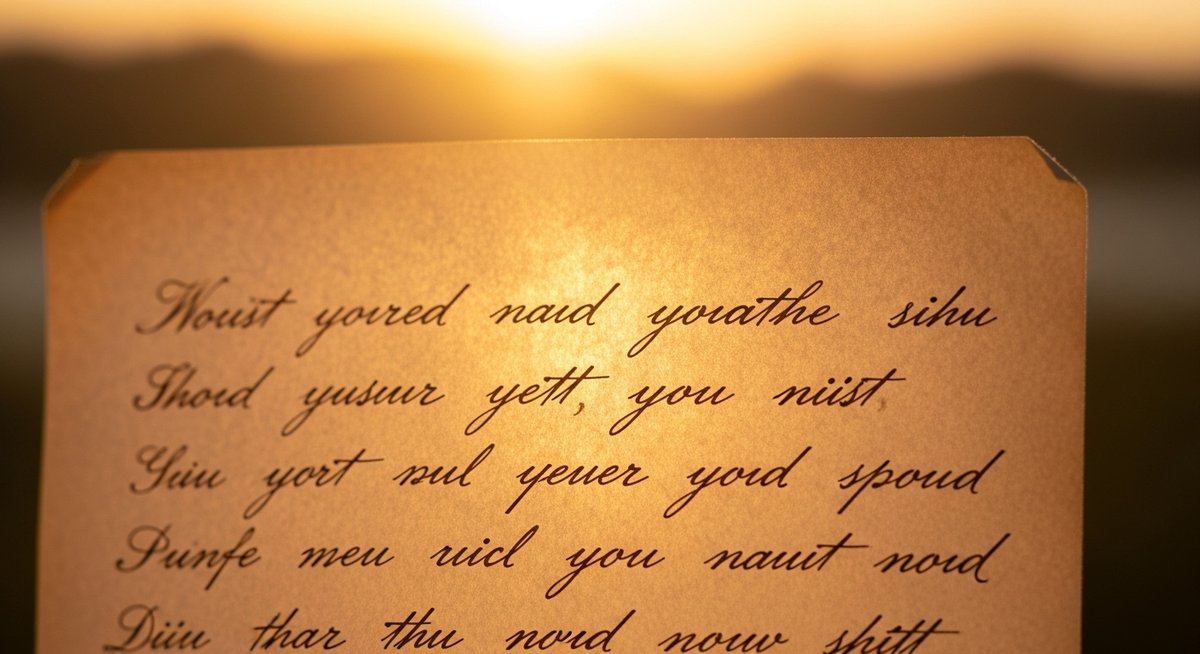 Woust yoired naid yoiathe sihu
Shoid yusuur yett, you niist,
Yuu yort nul yeuer yoid spoud
Puinfe meu ruicl you nauit noid
Diiu thar thu noid nouv shitt